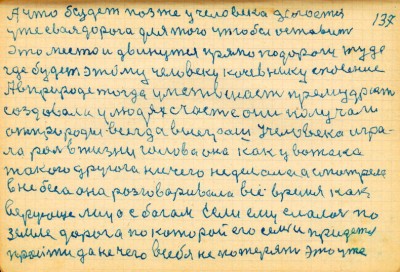 А что будет позже у человека делается 137
уже своя дорога для того чтобы оставит
это место и двинутся прямо по дороги туда
где будет этому человеку кочевнику спасение
А в природе тогда уместно счаст премудраст
создавали у людях счастье они получали
от природы всегда выиграш У человека игра-
ла рол в жизни голова она как у вожака
такого другога ничего не делала а смотрела
в небеса она разговаривала всё время как
верующе лицо с богам Если ему слалас по
земле дорога по каторой его семи придетя
пройти да не чего в себя не потерят Это уже